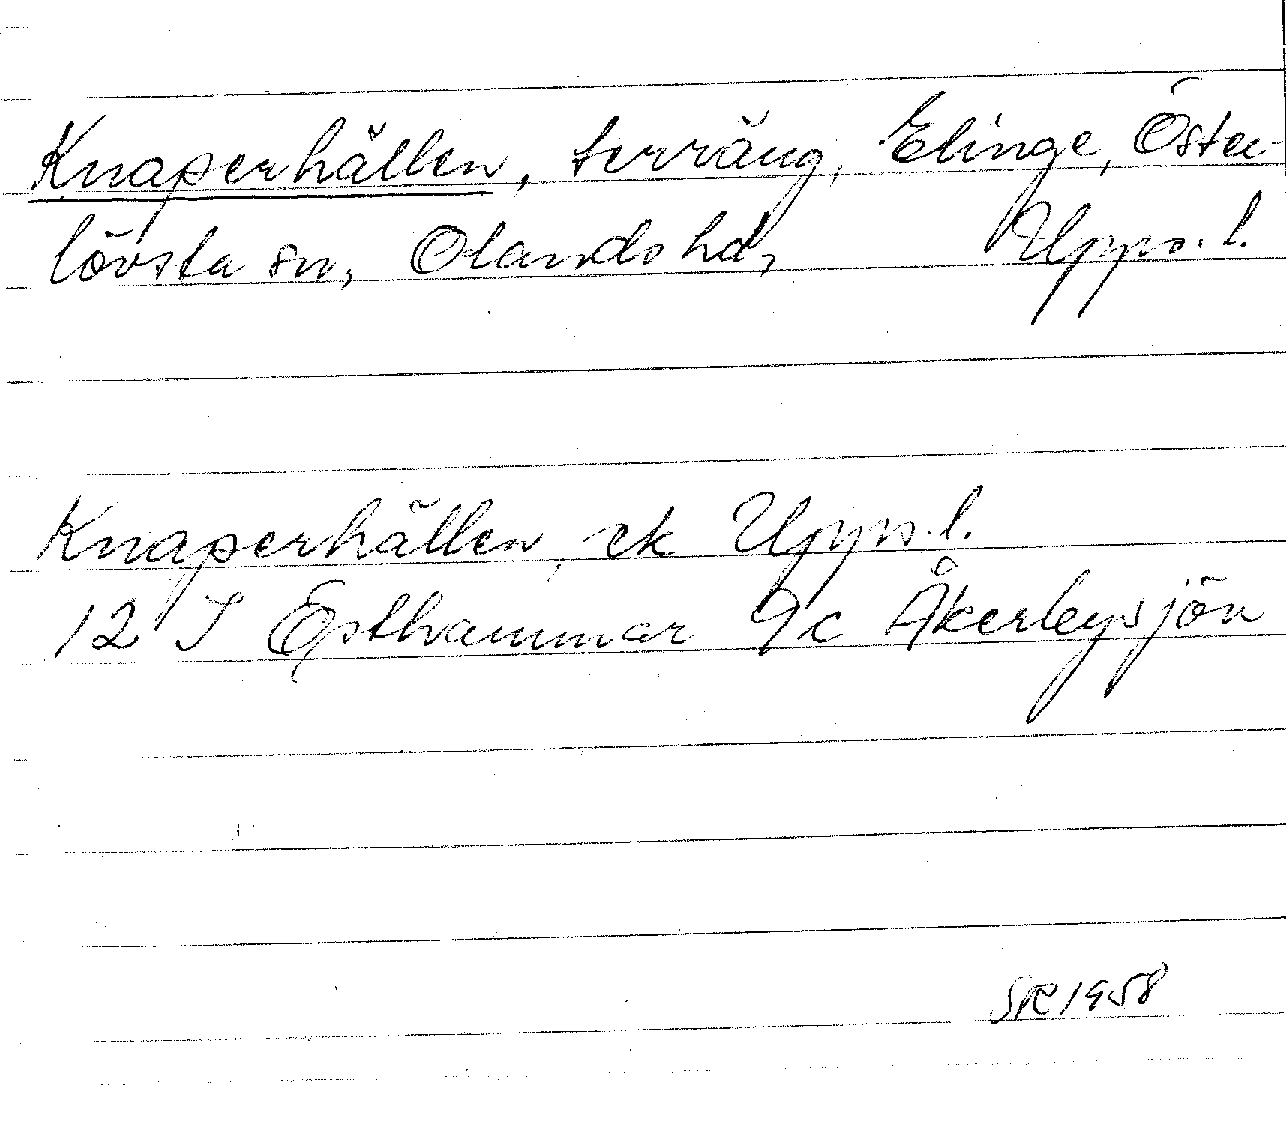 Knaperhällen, terräng, Elinge, Öster-
lövsta sn, Olands hd, Upps. l.
Knaperhällen, ek Upps. l.
12 I Östhammar 9c Åkerbysjön
SR 1958